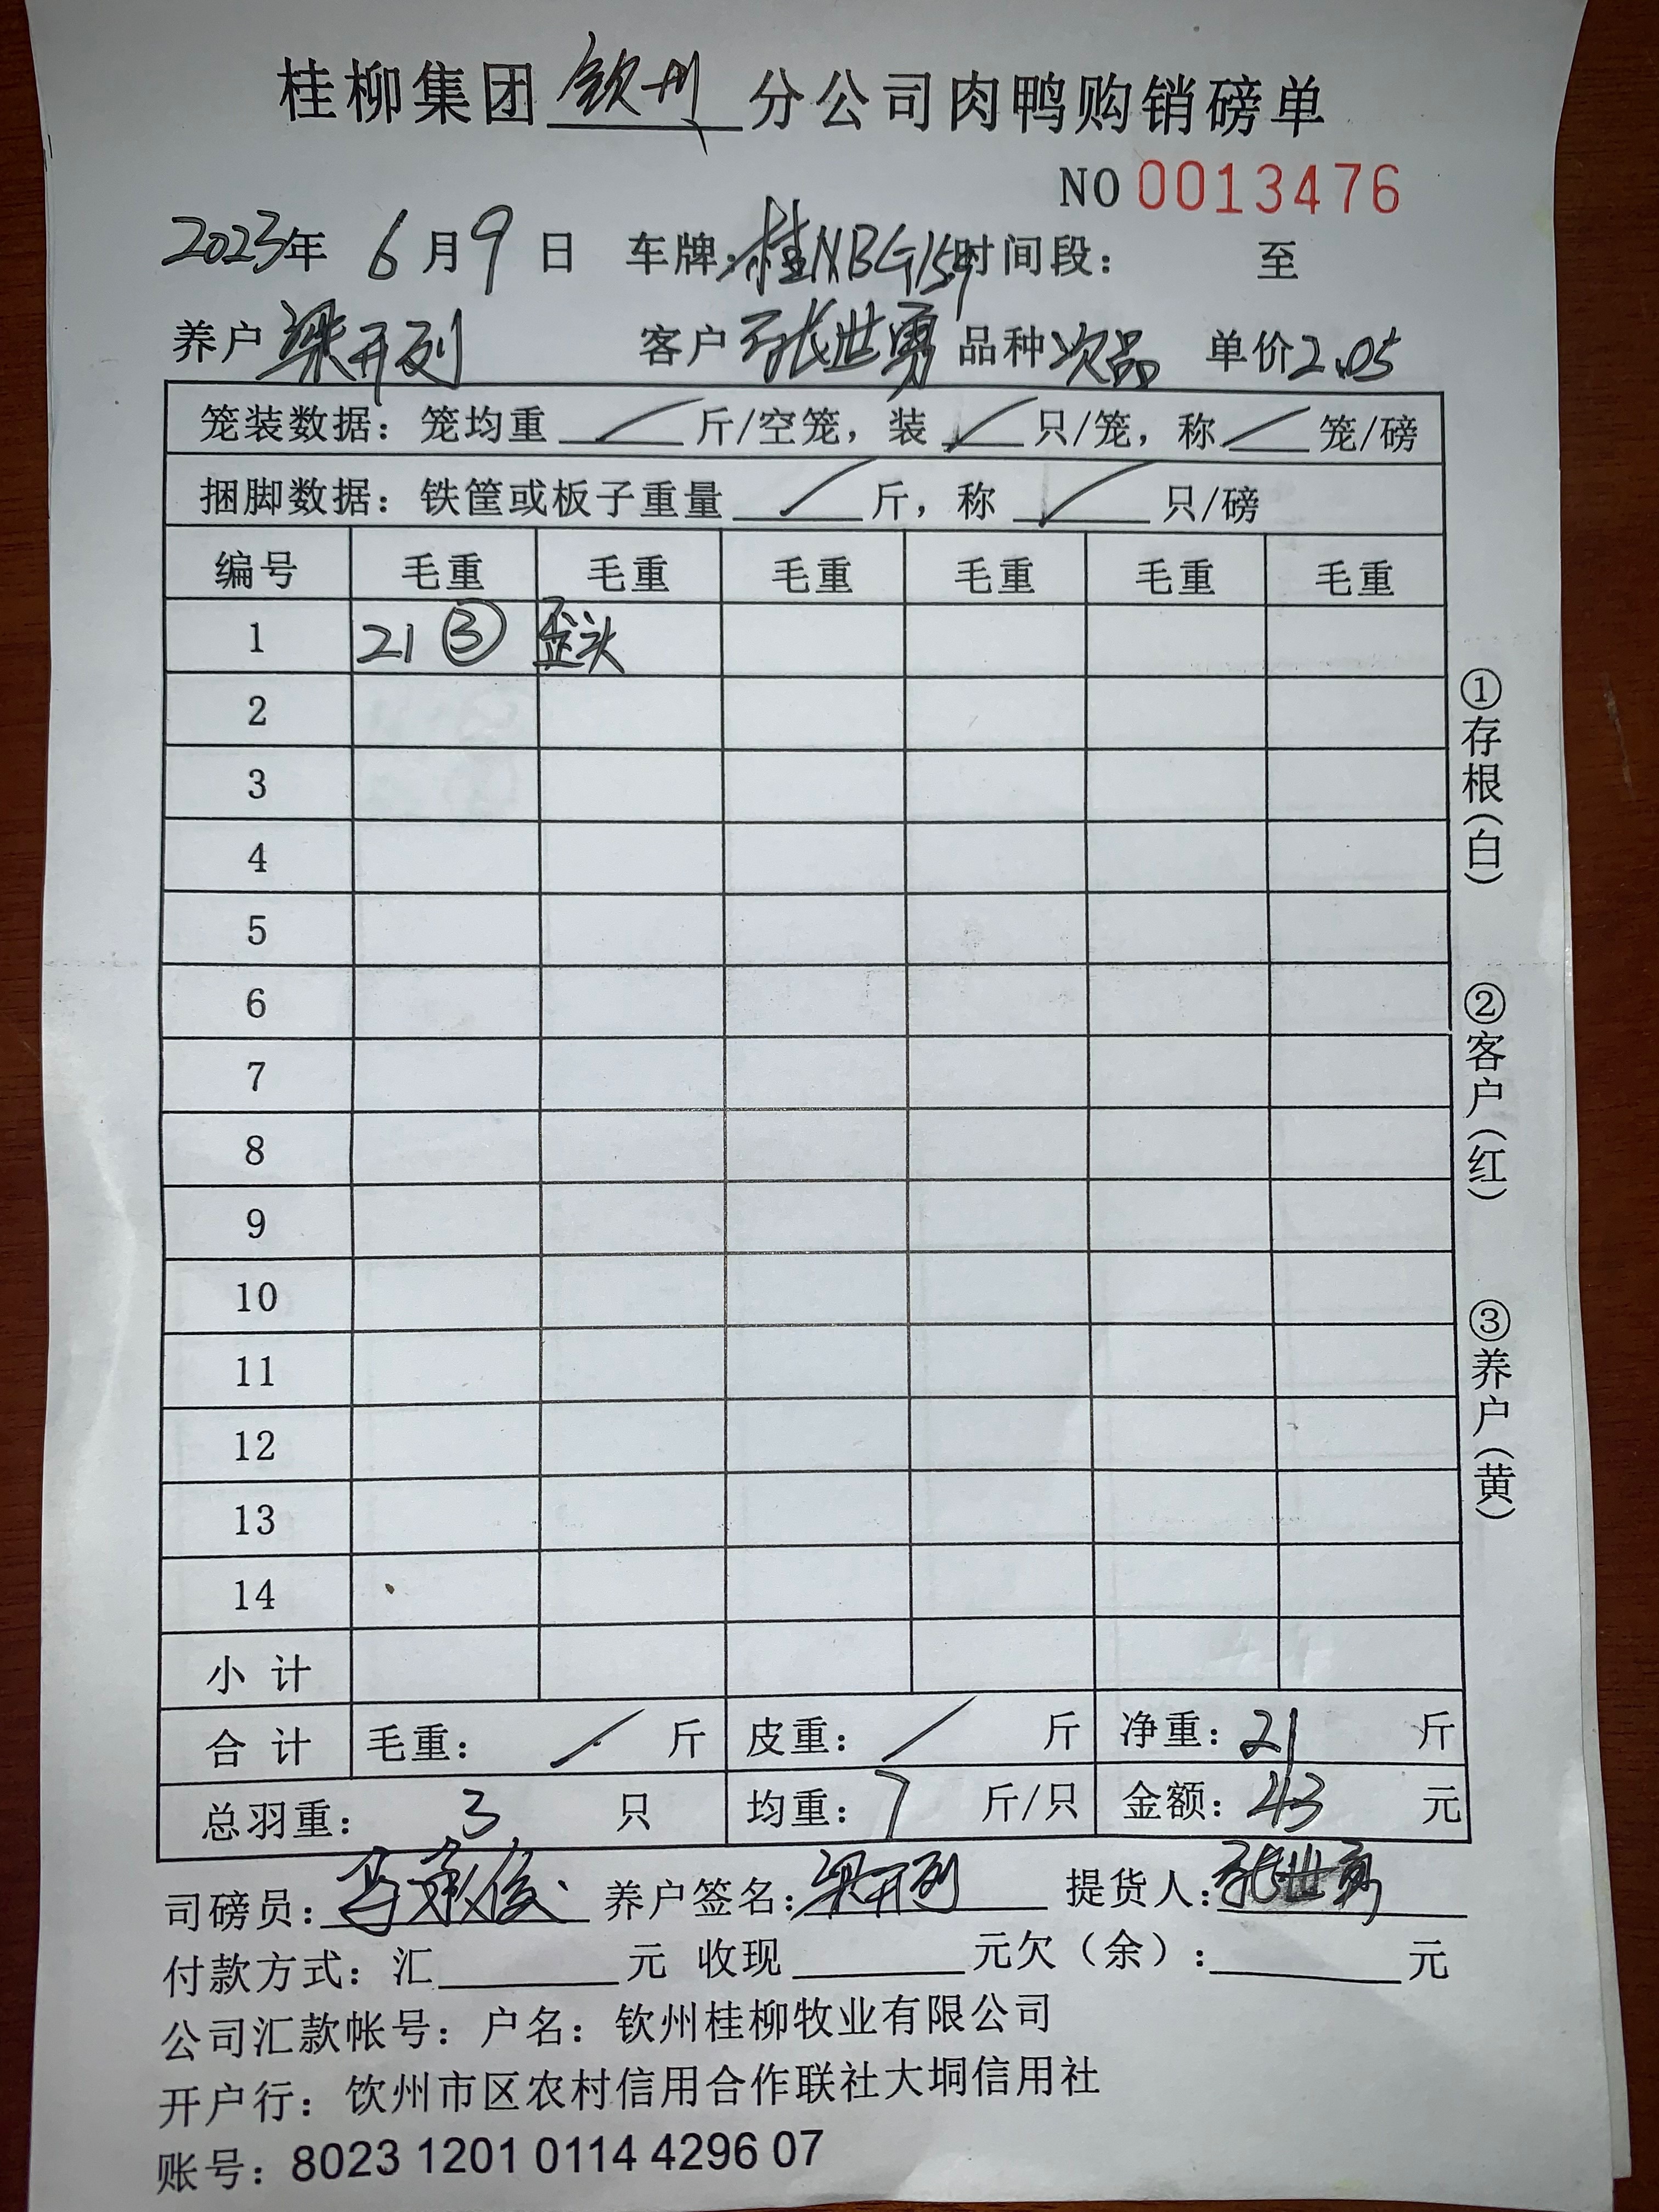 桂柳集团钦州分公司肉鸭购销磅单
NO 0013476
2023年 6月9日 车牌:桂NBG159时间段: 至
养户梁开列 客户张世勇 品种次品 单价2.05
笼装数据: 笼均重 / 斤/空笼, 装 / 只/笼, 称 / 笼/磅
捆脚数据: 铁筐或板子重量 / 斤, 称 / 只/磅
编号 毛重 毛重 毛重 毛重 毛重 毛重
1 21 ③ 歪头
2
3
4
5
6
7
8
9
10
11
12
13
14
小 计
合 计 毛重: / 斤 皮重: / 斤 净重: 21 斤
总羽重: 3 只 均重: 7 斤/只 金额: 43 元
司磅员: 养户签名:梁开列 提货人:张世勇
付款方式: 汇 元 收现 元欠(余): 元
公司汇款帐号: 户名: 钦州桂柳牧业有限公司
开户行: 钦州市区农村信用合作联社大垌信用社
账号: 8023 1201 0114 4296 07
①存根(白)
②客户(红)
③养户(黄)